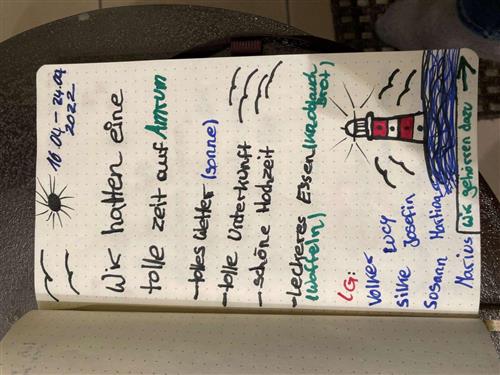 16 04 - 24.04
2022
Wir hatten eine
tolle Zeit auf Amrum
- tolles Wetter (Sonne)
- tolle Unterkunft
- schöne Hochzeit
- leckeres Essen (Knoblauch
Brot)
(Waffeln)
LG:
Volker Lucy
Silke Josefin
Sosann Martina
Marius Wir gehörren dazu →